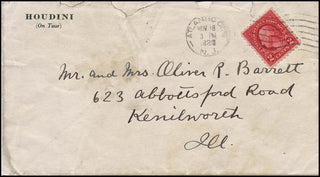 HOUDINI
(On Tour)
ATLANTIC CITY
NOV 18
3 PM
N. J.
Mr. and Mrs. Oliver R. Barrett
623 Abbottsford Road
Kenilworth
Ill.